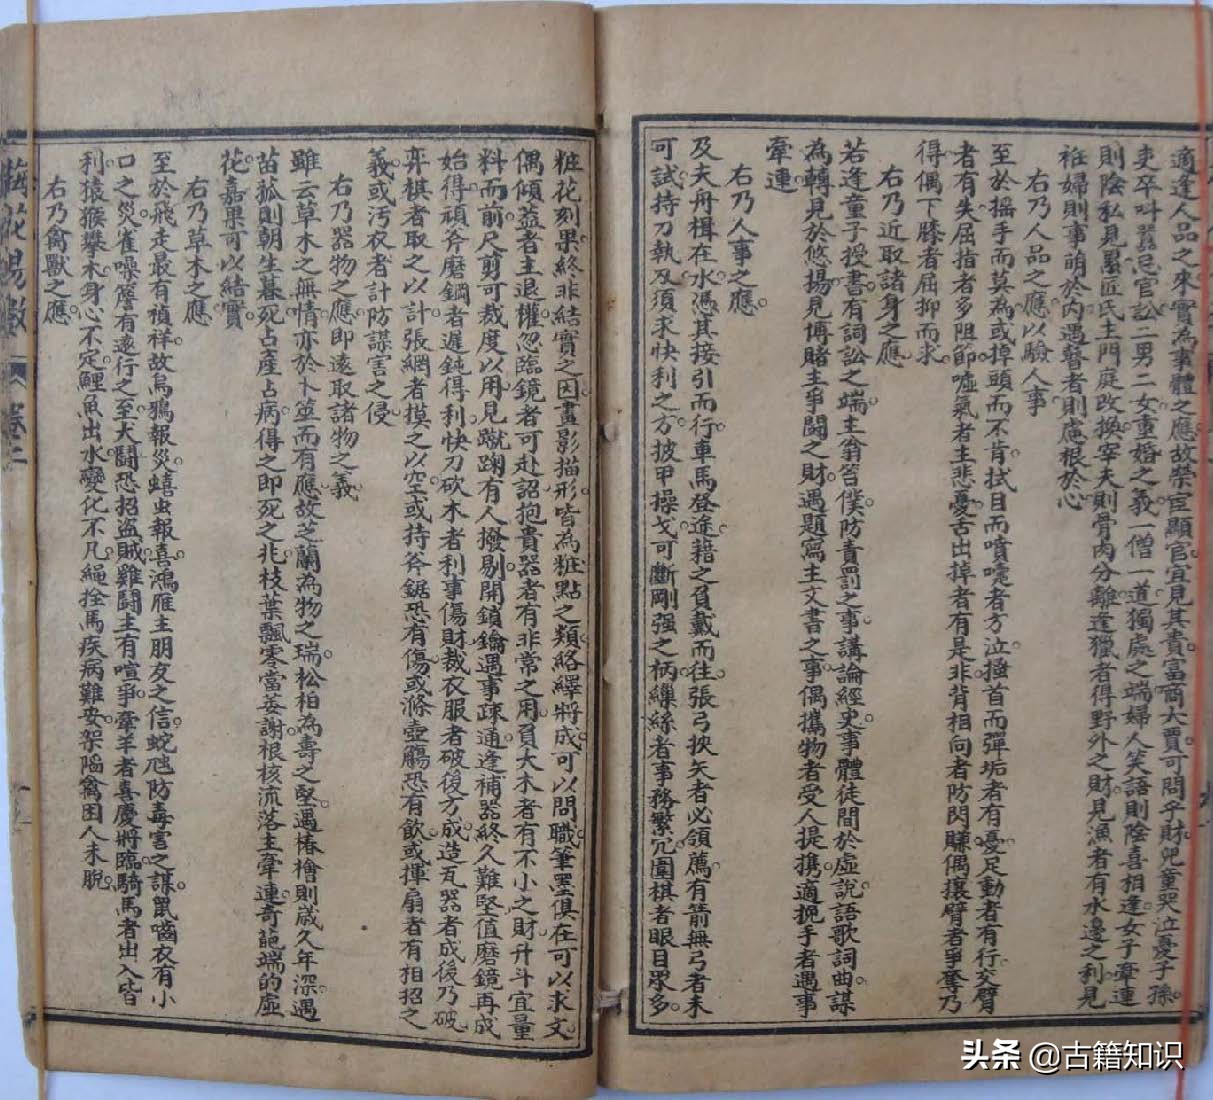 適逢人品之來實為事體之應故榮宦顯官宜見其貴富商大賈可問乎財兒童哭泣憂子孫
吏卒叫囂忌官訟二男二女重婚之義一僧一道獨處之端婦人笑語則陰喜相逢女子牽連
則陰私見累匠氏主門庭改換宰夫則骨肉分離逢獵者得野外之財見漁者有水邊之利見
姙婦則事萌於內遇瞽者則慮根於心
右乃人品之應以驗人事
至於搖手而莫為或掉頭而不肯拭目而噴嚏者方泣搔首而彈垢者有憂足動者有行交臂
者有失屈指者多阻節噓氣者主悲憂舌出掉者有是非背相向者防閃賺偶攘臂者爭奪乃
得偶下膝者屈抑而求
右乃近取諸身之應
若逢童子授書有詞訟之端主翁笞僕防責罰之事講論經史事體徒間於虛說語歌詞曲謀
為轉見於悠揚見博賭主爭鬪之財遇題寫主文書之事偶攜物者受人提携適挽手者遇事
牽連
右乃人事之應
及夫舟楫在水憑其接引而行車馬登途藉之負戴而往張弓挾矢者必領薦有箭無弓者未
可試持刀執及須求快利之方披甲操戈可斷剛强之柄繅絲者事務繁冗圍棋者眼目眾多
粧花刻果終非結實之因畫影描形皆為粧點之類絡繹將成可以問職筆墨俱在可以求文
偶傾蓋者主退權忽臨鏡者可赴詔抱貴器者有非常之用負大木者有不小之財升斗宜量
料而前尺剪可裁度以用見蹴踘有人撥剔開鎖鑰遇事疎通逢補器終久難堅值磨鏡再成
始得頑斧磨鋼者遲鈍得利快刀砍木者利事傷財裁衣服者破後方成造瓦器者成後乃破
弈棋者取之以計張網者摸之以空或持斧鋸恐有傷或滌壺觴恐有飲或揮扇者有相招之
義或污衣者計防謀害之侵
右乃器物之應即遠取諸物之義
雖云草木之無情亦於卜筮而有應故芝蘭為物之瑞松柏為壽之堅遇椿檜則歲久年深遇
苗菰則朝生暮死占產占病得之即死之兆枝葉飄零當萎謝根核流落主牽連奇葩端的虛
花嘉果可以結實
右乃草木之應
至於飛走最有禎祥故烏鴉報災蟢虫報喜鴻雁主朋友之信蛇虺防毒害之謀鼠嚙衣有小
口之災雀噪簷有遠行之至犬鬪恐招盜賊雞鬪主有喧爭牽羊者喜慶將臨騎馬者出入皆
利猿猴攀木身心不定鯉魚出水變化不凡繩拴馬疾病難安架陷禽困人未脫
右乃禽獸之應
梅花易數
卷二
头条 @古籍知识